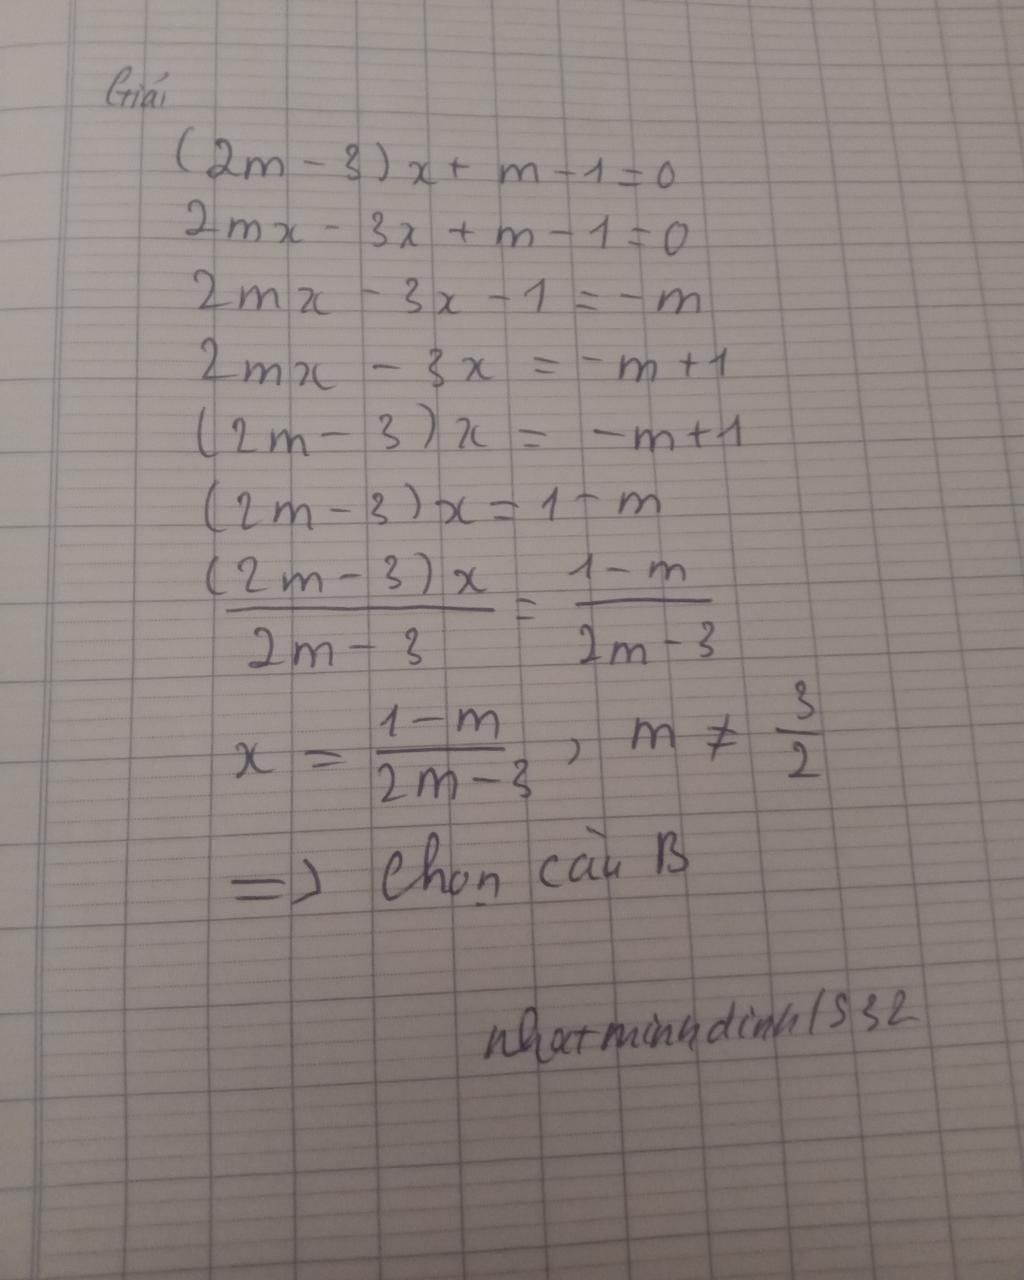 Giải
(2m - 3)x + m - 1 = 0
2mx - 3x + m - 1 = 0
2mx - 3x - 1 = -m
2mx - 3x = -m + 1
(2m - 3)x = -m + 1
(2m - 3)x = 1 - m
(2m - 3)x / 2m - 3 = 1 - m / 2m - 3
x = 1 - m / 2m - 3 , m ≠ 3 / 2
=> Chọn câu B
nhatminhdinh1532